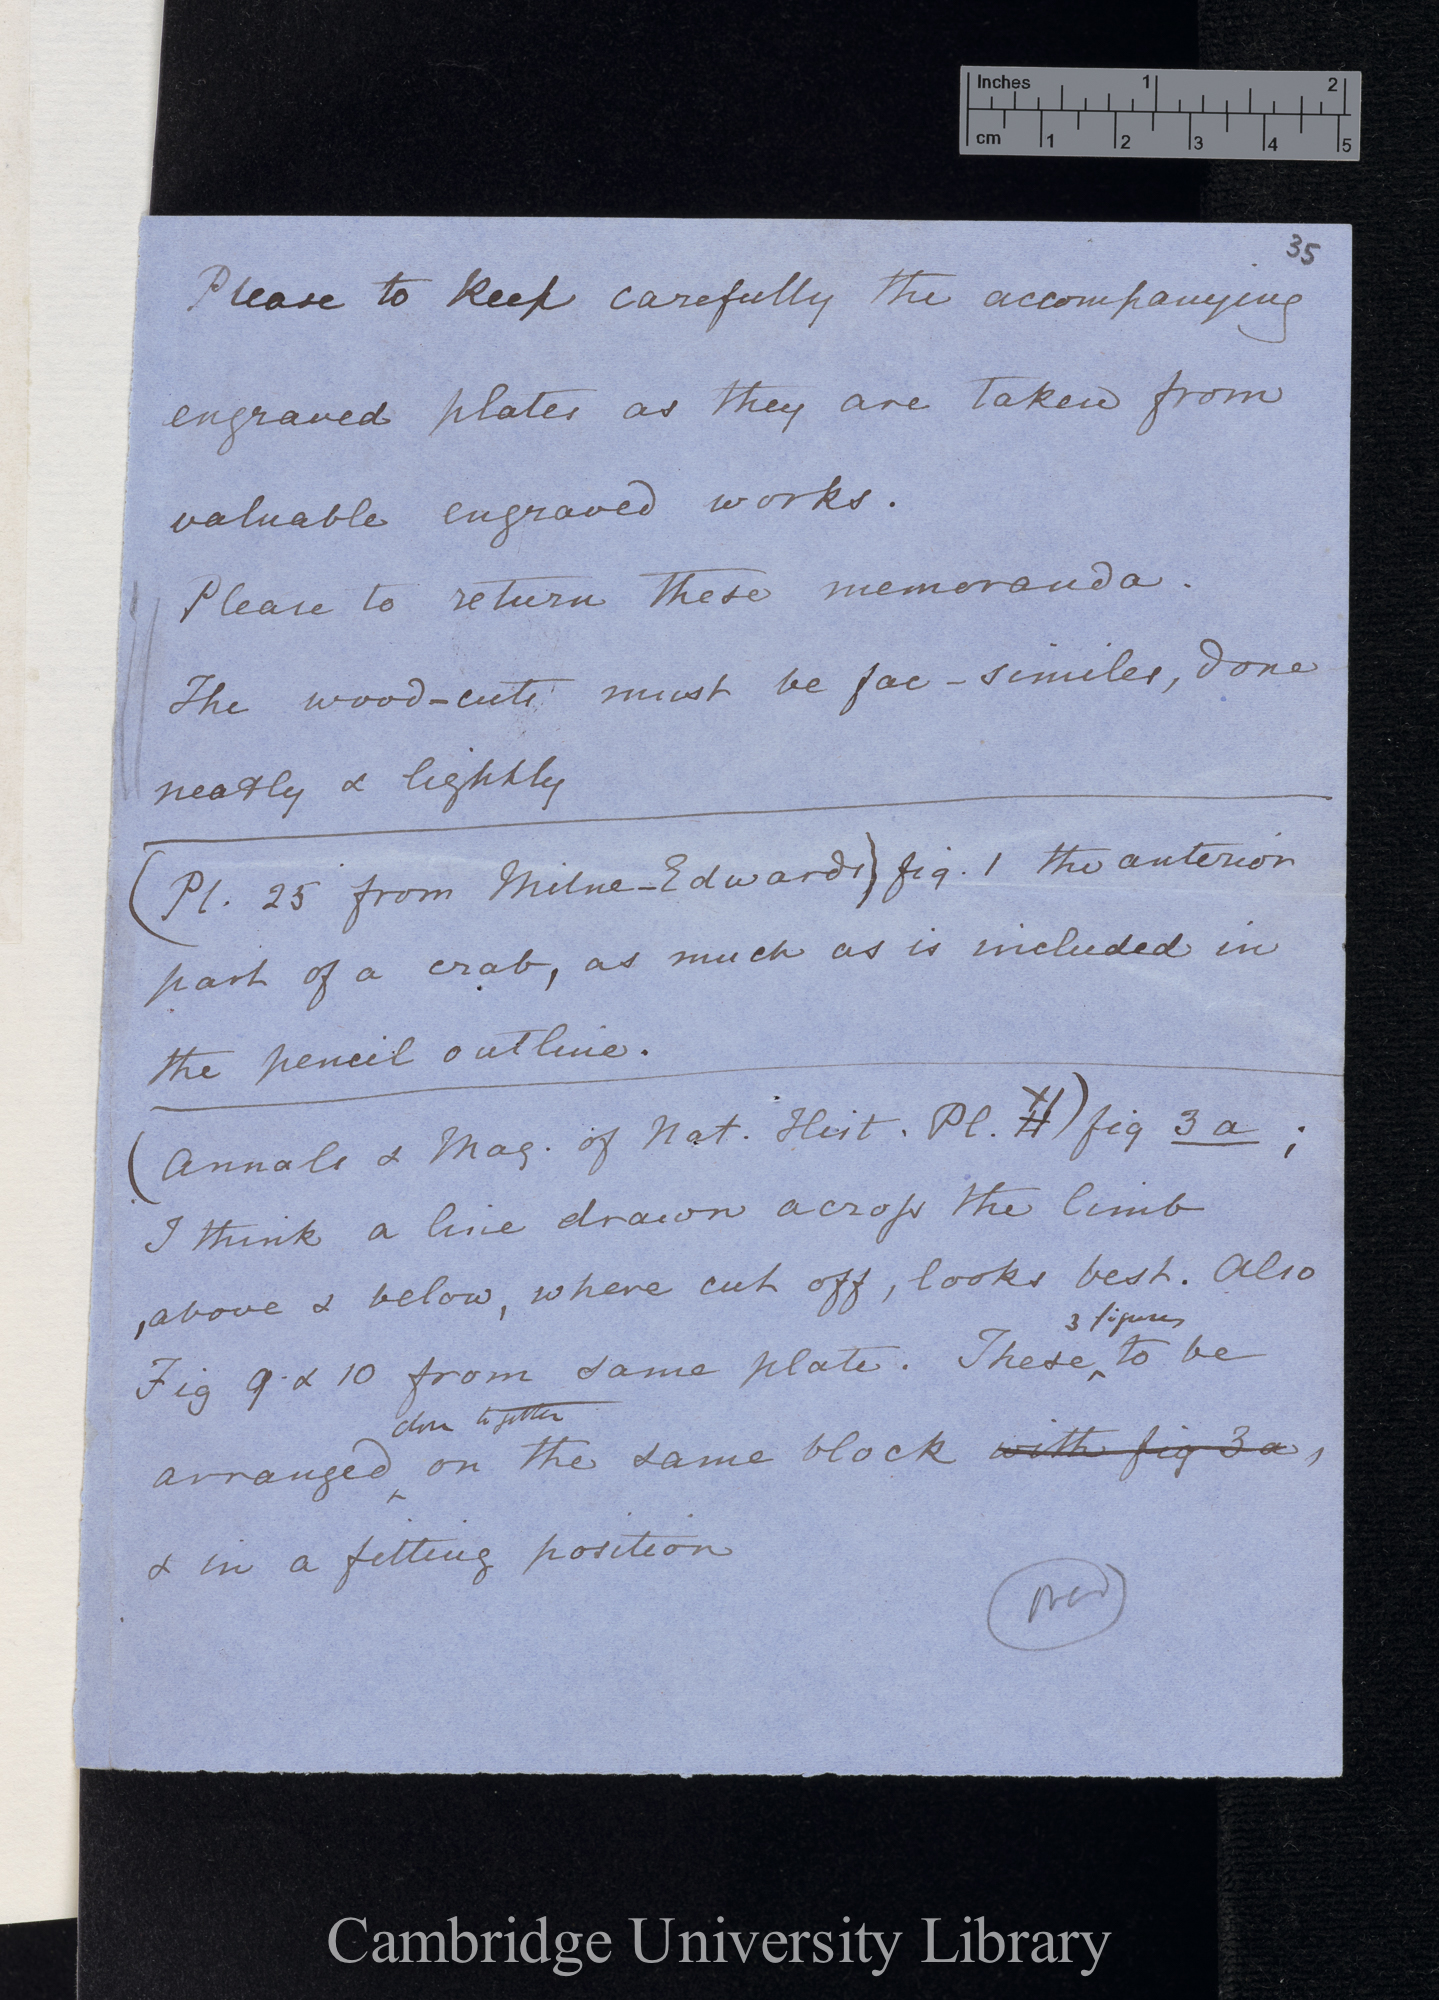 Inches 1 2
cm 1 2 3 4 5
35
Please to keep carefully the accompanying
engraved plates as they are taken from
valuable engraved works.
Please to return these memoranda.
The wood-cuts must be fac-similes, done
neatly & lightly
(Pl. 25 from Milne-Edwards) fig. 1 the anterior
part of a crab, as much as is included in
the pencil outline.
(Annals & Mag. of Nat. Hist. Pl. ) fig 3a;
I think a line drawn across the limb
, above & below, where cut off, looks best. Also
3 figures
Fig 9 & 10 from same plate. These to be
close together
arranged on the same block with fig 3a,
& in a fitting position
Cambridge University Library